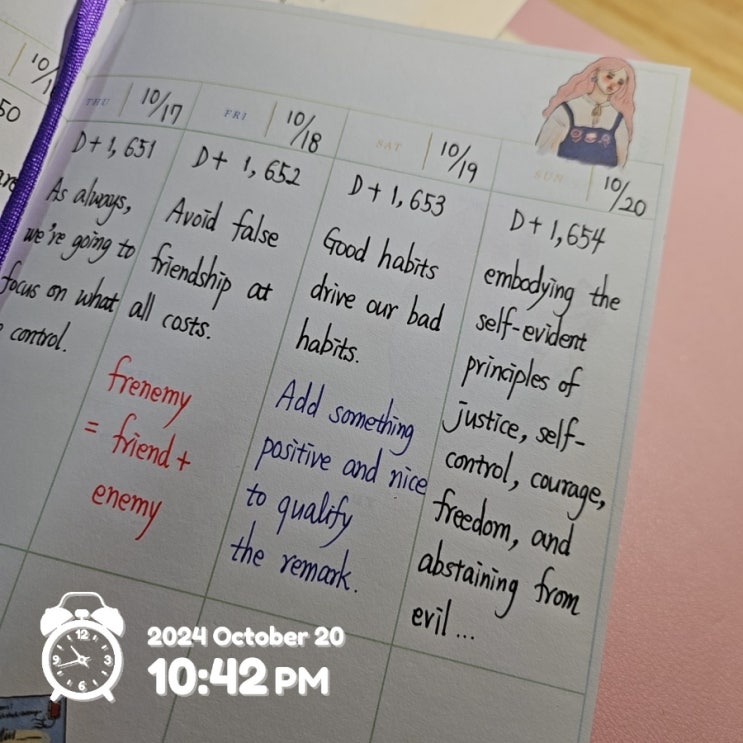 50
10/1
THU 10/17
D+1,651
As always,
we're going to
focus on what
control.
FRI 10/18
D+ 1,652
Avoid false
friendship at
all costs.
frenemy
= friend +
enemy
SAT 10/19
D+1,653
Good habits
drive our bad
habits.
Add something
positive and nice
to qualify
the remark.
SUN 10/20
D+1,654
embodying the
self-evident
principles of
justice, self-
control, courage,
freedom, and
abstaining from
evil...
12
3
6
9
2024 October 20
10:42 PM